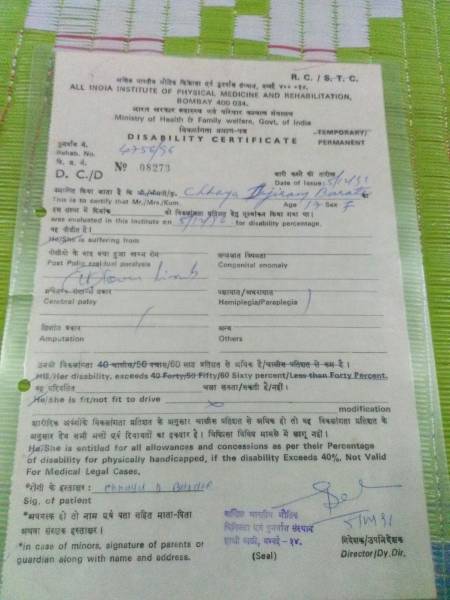 R. C. / S. T. C.
अखिल भारतीय भौतिक चिकित्सा एवं पुनर्वास संस्थान, बम्बई ४०० ०३४.
ALL INDIA INSTITUTE OF PHYSICAL MEDICINE AND REHABILITATION,
BOMBAY 400 034.
भारत सरकार स्वास्थ्य एवं परिवार कल्याण मंत्रालय
Ministry of Health & Family welfare, Govt. of India
विकलांगता प्रमाण-पत्र
DISABILITY CERTIFICATE
TEMPORARY/
PERMANENT
पुनर्वास नं.
Rehab. No.
वि. प्र. नं.
D. C. / D
Nº 08273
जारी करने की तारीख
Date of Issue
प्रमाणित किया जाता है कि श्री/श्रीमती/कु. Chhaya
This is to certify that Mr./Mrs./Kum. Age Sex F
इस संस्था में दिनांक को विकलांगता प्रतिशत हेतु मूल्यांकन किया गया था।
was evaluated in this Institute on for disability percentage.
वह पीड़ित है।
He/She is suffering from
पोलीयो के बाद बचा हुआ लकवा रोग
Post Polio residual paralysis
जन्मजात विषमता
Congenital anomaly
Lower Limb
प्रमस्तिष्क संस्तम्भ प्रकार
Cerebral palsy
पक्षाघात/अधरांगघात
Hemiplegia/Paraplegia
विच्छेद प्रकार
Amputation
अन्य
Others
उसकी विकलांगता 40 चालीस/50 पचास/60 साठ प्रतिशत से अधिक है/चालीस प्रतिशत से कम है।
His/Her disability, exceeds 40 Forty/50 Fifty/60 Sixty percent/Less than Forty Percent.
वह परिवर्तित चला सकता/सकती है/नहीं।
He/She is fit/not fit to drive
modification
शारीरिक अपंगता के विकलांगता प्रतिशत के अनुसार चालीस प्रतिशत से अधिक हो तो वह विकलांगता प्रतिशत के
अनुसार देय सभी भत्तों एवं रियायतों का हकदार है। चिकित्सा विधिक मामले में लागू नहीं।
He/She is entitled for all allowances and concessions as per their Percentage
of disability for physically handicapped, if the disability Exceeds 40%. Not Valid
For Medical Legal Cases.
*रोगी के हस्ताक्षर :
Sig. of patient
*अवयस्क हो तो नाम एवं पता सहित माता-पिता
अथवा संरक्षक हस्ताक्षर।
*in case of minors, signature of parents or
guardian along with name and address.
अखिल भारतीय भौतिक
चिकित्सा एवं पुनर्वास संस्थान
हाजी अली, बम्बई-३४.
(Seal)
निदेशक/उपनिदेशक
Director/Dy. Dir.